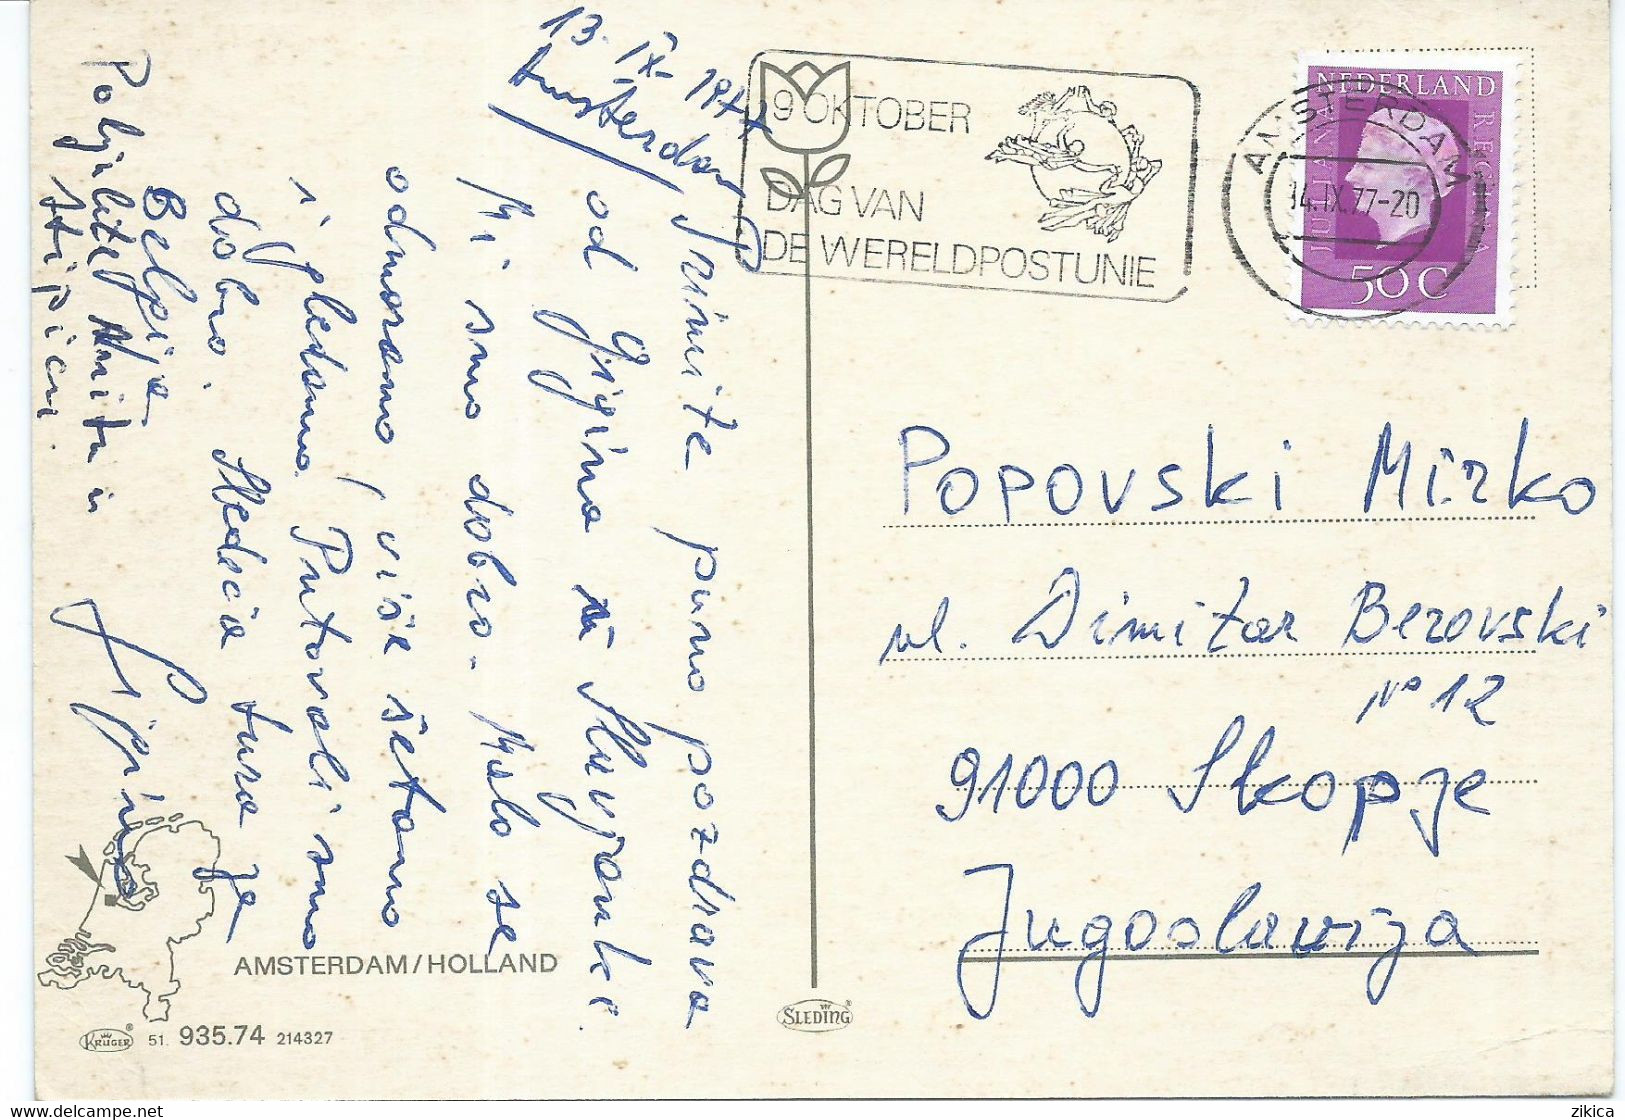 13. IX. 1977
Amsterdam
Primite puno pozdrava
od Gigina i Slavjanke.
Mi smo dobro. Malo se
odmaramo, više šetamo
i gledamo. Putovali smo
dobro. Sledeća tura je
Belgija
Poljubite Anita i
stipicu.
9 OKTOBER
DAG VAN
DE WERELDPOSTUNIE
AMSTERDAM
14.IX.77-20
NEDERLAND
JULIANA REGINA
50 C
Popovski Mirko
ul. Dimitar Berovski
No 12
91000 Skopje
Jugoslavija
AMSTERDAM/HOLLAND
KRÜGER® 51. 935.74 214327
SLEDING®
delcampe.net
zikica